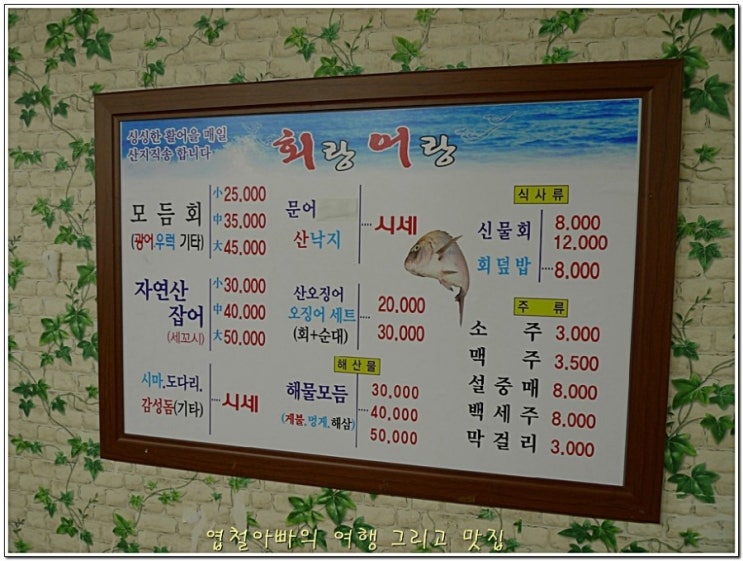 싱싱한 활어을 매일
산지직송 합니다
회랑어랑
모듬회
(광어.우럭 기타)
小 25,000
中 35,000
大 45,000
자연산
잡어
(세꼬시)
小 30,000
中 40,000
大 50,000
시마.도다리.
감성돔(기타)
시세
문어
산낙지
시세
산오징어
오징어 세트
(회+순대)
20,000
30,000
해산물
해물모듬
(게불.멍게.해삼)
30,000
40,000
50,000
식사류
신물회 8.000
12.000
회덮밥 8,000
주류
소주 3.000
맥주 3.500
설중매 8.000
백세주 8.000
막걸리 3.000
엽철아빠의 여행 그리고 맛집